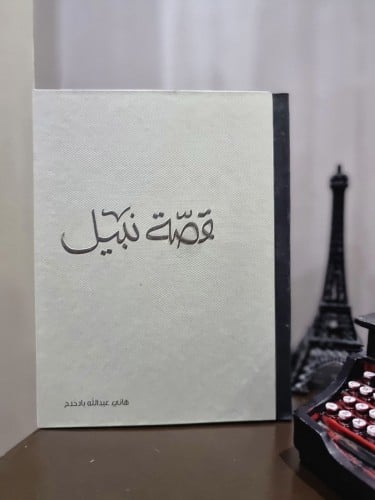 قصّة نبيل
هاني عبدالله باذخدح